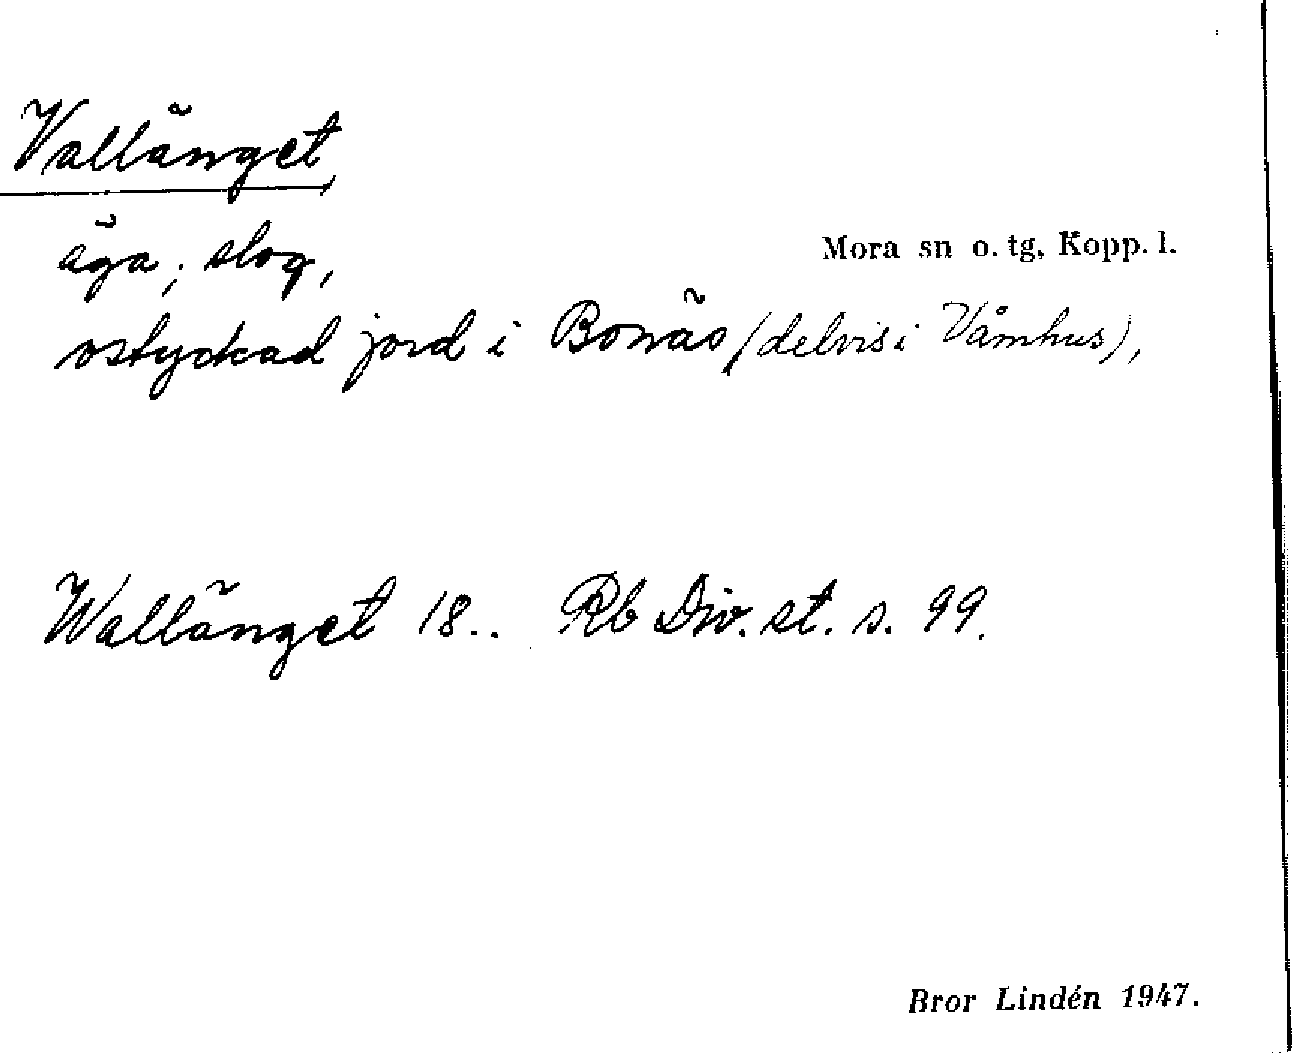 Vallänget,
Mora sn o. tg, Kopp. l.
äga; slog,
ostyckad jord i Bonäs (delvis i Våmhus),
Wallänget 18.. Rb Div. st. s. 99.
Bror Lindén 1947.